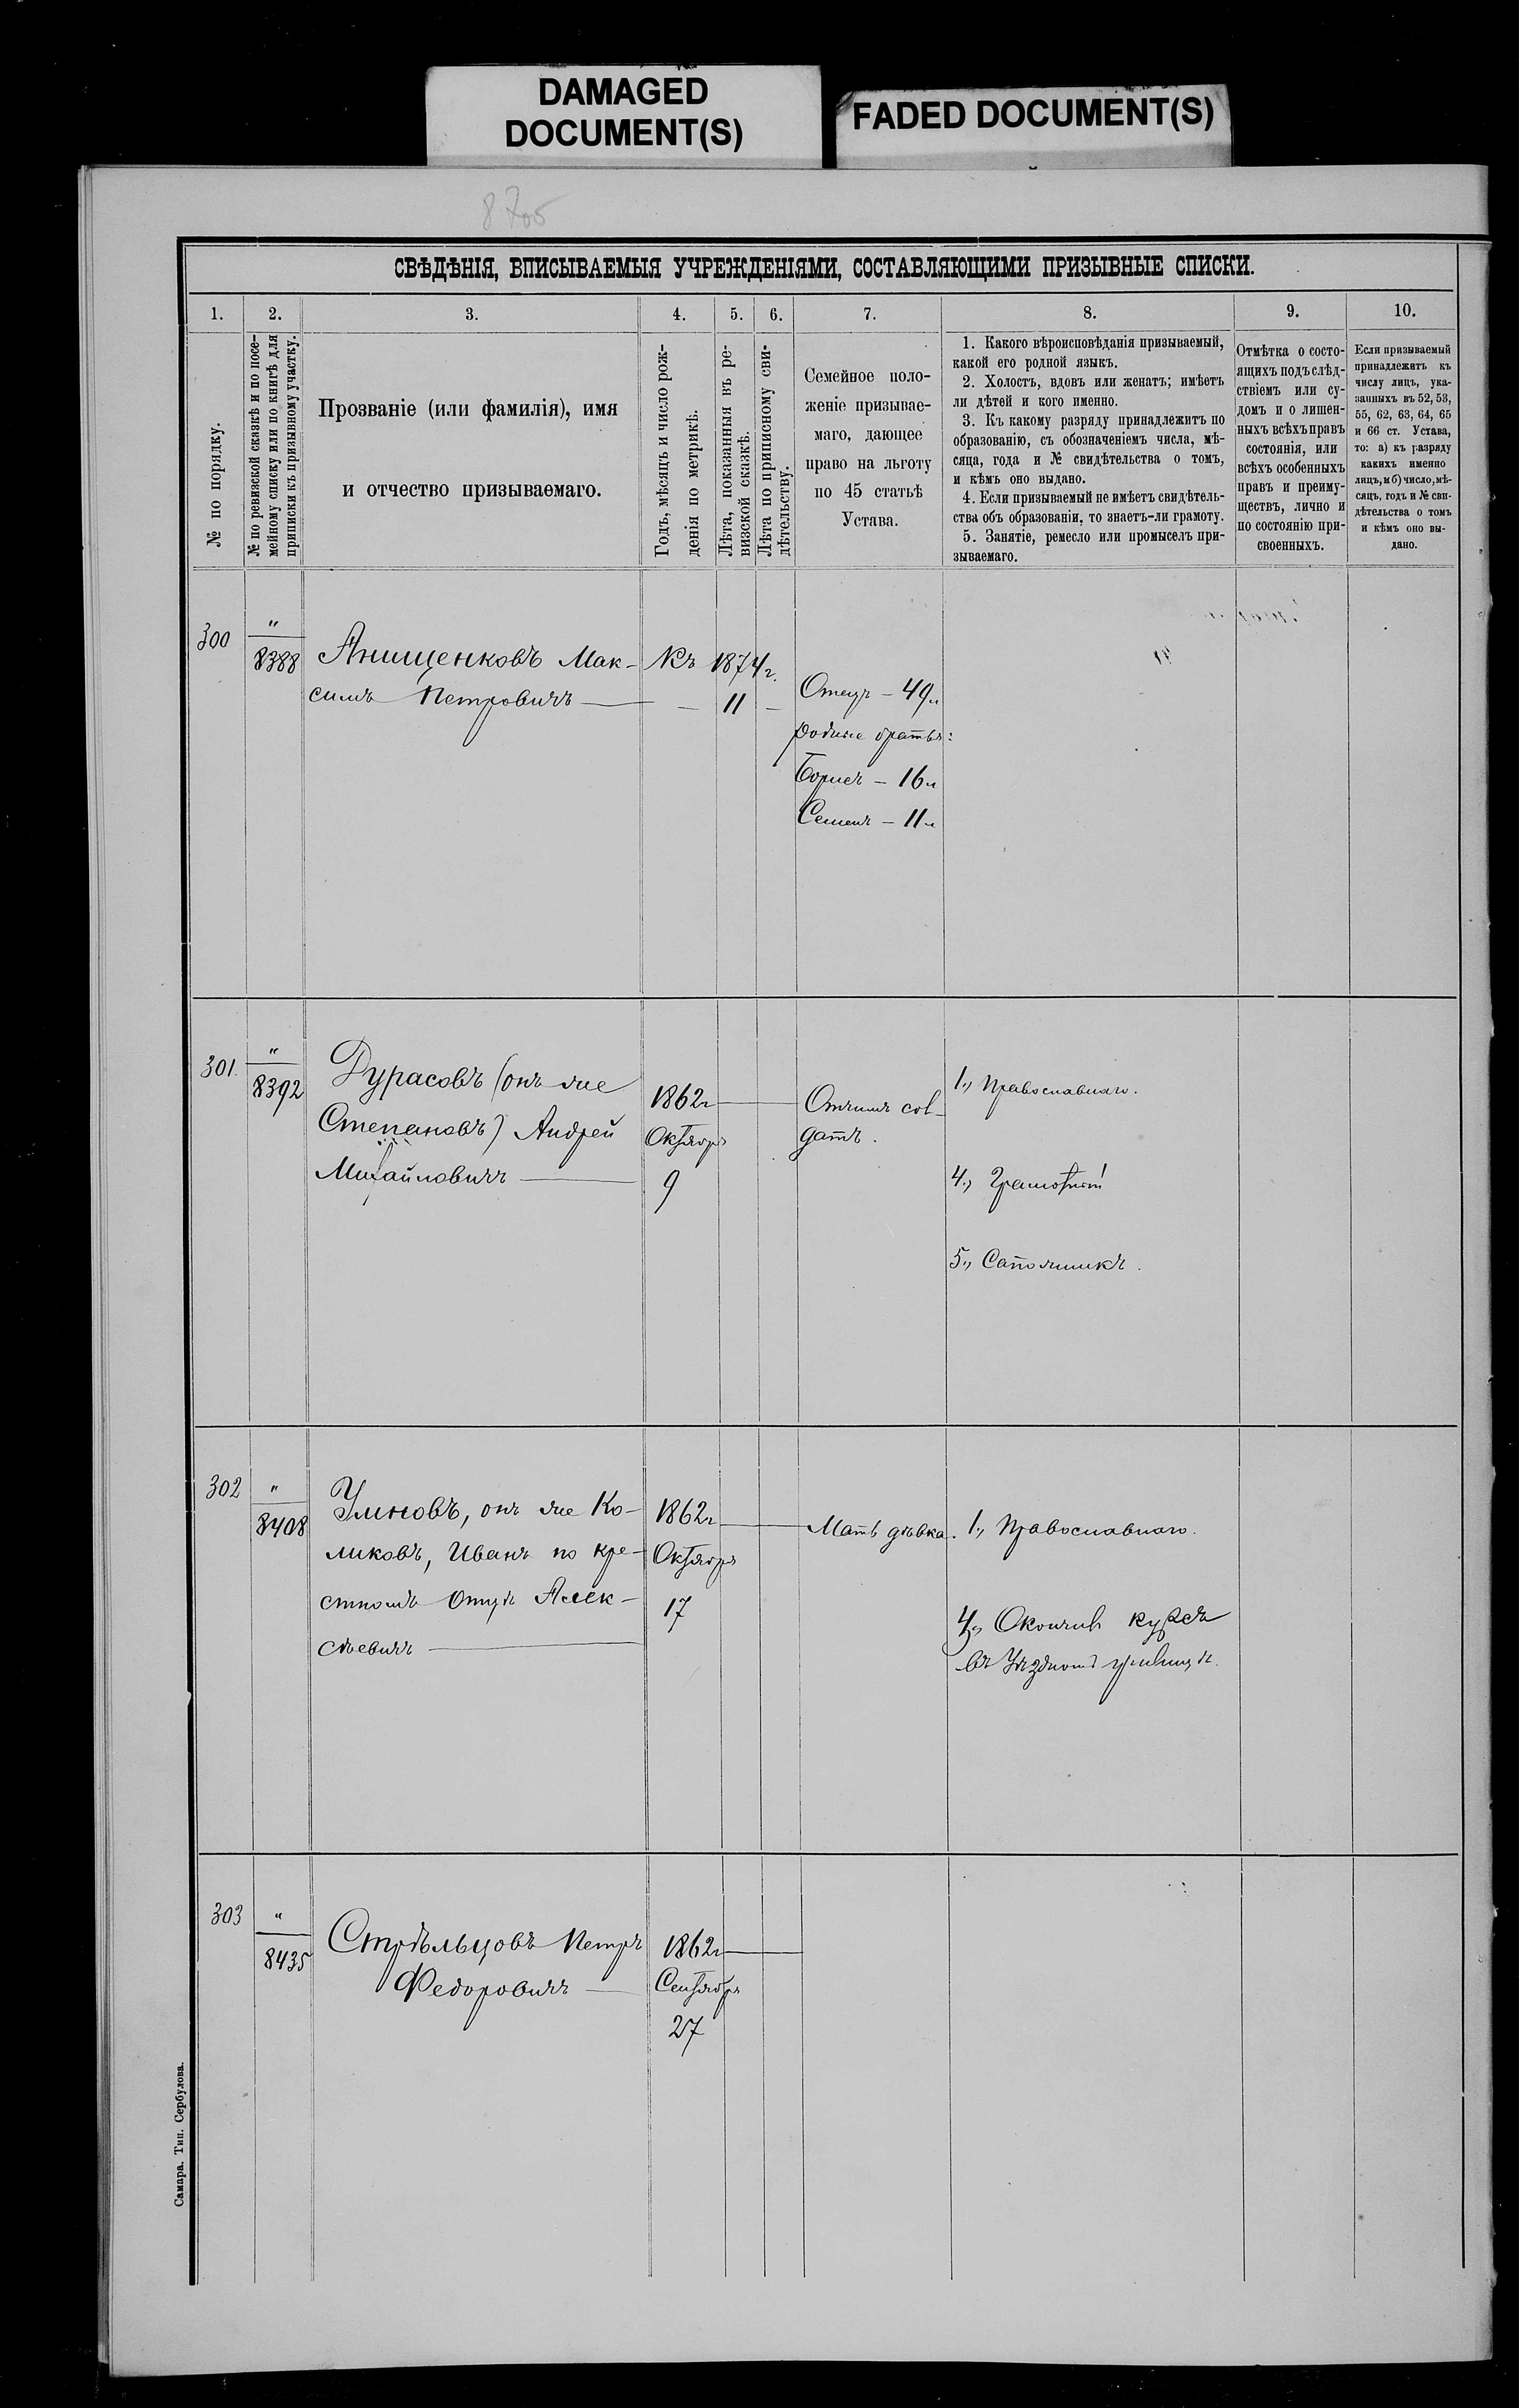 DAMAGED
DOCUMENT(S)
FADED DOCUMENT(S)
8705
СВѢДѢНІЯ, ВПИСЫВАЕМЫЯ УЧРЕЖДЕНІЯМИ, СОСТАВЛЯЮЩИМИ ПРИЗЫВНЫЕ СПИСКИ.
1.
2.
3.
4.
5.
6.
7.
8.
9.
10.
№ по порядку.
№ по ревизской сказкѣ и по посе-
мейному списку или по книгѣ для
приписки къ призывному участку.
Прозваніе (или фамилія), имя
и отчество призываемаго.
Годъ, мѣсяцъ и число рож-
денія по метрикѣ.
Лѣта, показанныя въ ре-
визской сказкѣ.
Лѣта по приписному сви-
дѣтельству.
Семейное поло-
женіе призывае-
маго, дающее
право на льготу
по 45 статьѣ
Устава.
1. Какого вѣроисповѣданія призываемый,
какой его родной языкъ.
2. Холостъ, вдовъ или женатъ; имѣетъ
ли дѣтей и кого именно.
3. Къ какому разряду принадлежитъ по
образованію, съ обозначеніемъ числа, мѣ-
сяца, года и № свидѣтельства о томъ,
и кѣмъ оно выдано.
4. Если призываемый не имѣетъ свидѣтель-
ства объ образованіи, то знаетъ-ли грамоту.
5. Занятіе, ремесло или промыселъ при-
зываемаго.
Отмѣтка о состо-
ящихъ подъ слѣд-
ствіемъ или су-
домъ и о лишен-
ныхъ всѣхъ правъ
состоянія, или
всѣхъ особенныхъ
правъ и преиму-
ществъ, лично и
по состоянію при-
своенныхъ.
Если призываемый
принадлежитъ къ
числу лицъ, ука-
занныхъ въ 52, 53,
55, 62, 63, 64, 65
и 66 ст. Устава,
то: а) къ разряду
какихъ именно
лицъ, и б) число, мѣ-
сяцъ, годъ и № сви-
дѣтельства о томъ
и кѣмъ оно вы-
дано.
300
"
8388
Анищенковъ Мак-
симъ Петровичъ —
Къ 1874 г.
— 11 —
Отецъ — 49 л
родные братья:
Борисъ — 16 л
Семенъ — 11 л
301.
"
8392
Дурасовъ (онъ же
Степановъ) Андрей
Михайловичъ —
1862 г
Октября
9
Отчимъ сол-
датъ.
1., Православнаго.
4., Грамотный
5., Сапожникъ.
302
"
8408
Умновъ, онъ же Ко-
ликовъ, Иванъ по кре-
стномъ отцѣ Алек-
сѣевичъ —
1862 г
Октября
17
Мать дѣвка.
1., Православнаго.
4., Окончилъ курсъ
въ Уѣздномъ училищѣ.
303
"
8435
Стрѣльцовъ Петръ
Федоровичъ —
1862 г
Сентября
27
Самара. Тип. Сербулова.